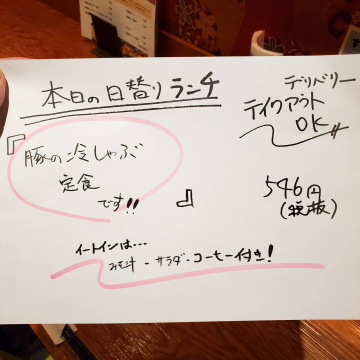 本日の日替りランチ
デリバリー
テイクアウト
OK
『豚の冷しゃぶ
定食
です!!』
546円
(税抜)
イートインは…
みそ汁・サラダ・コーヒー付き!